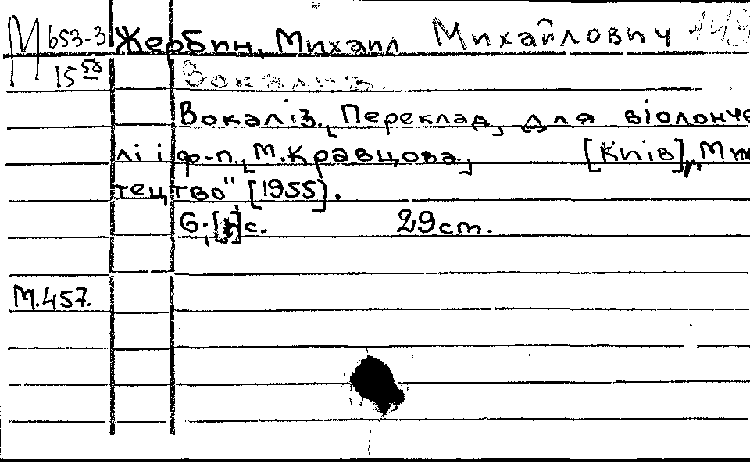 М 653-3 Жербин, Михаил Михайлович
15 50 Вокализ.
Вокаліз. [Переклад] для віолонче
лі і ф-п. [М. Кравцова] [Київ], „Мис
тецтво" [1955].
6, [1] с. 29 cm.
М.457.